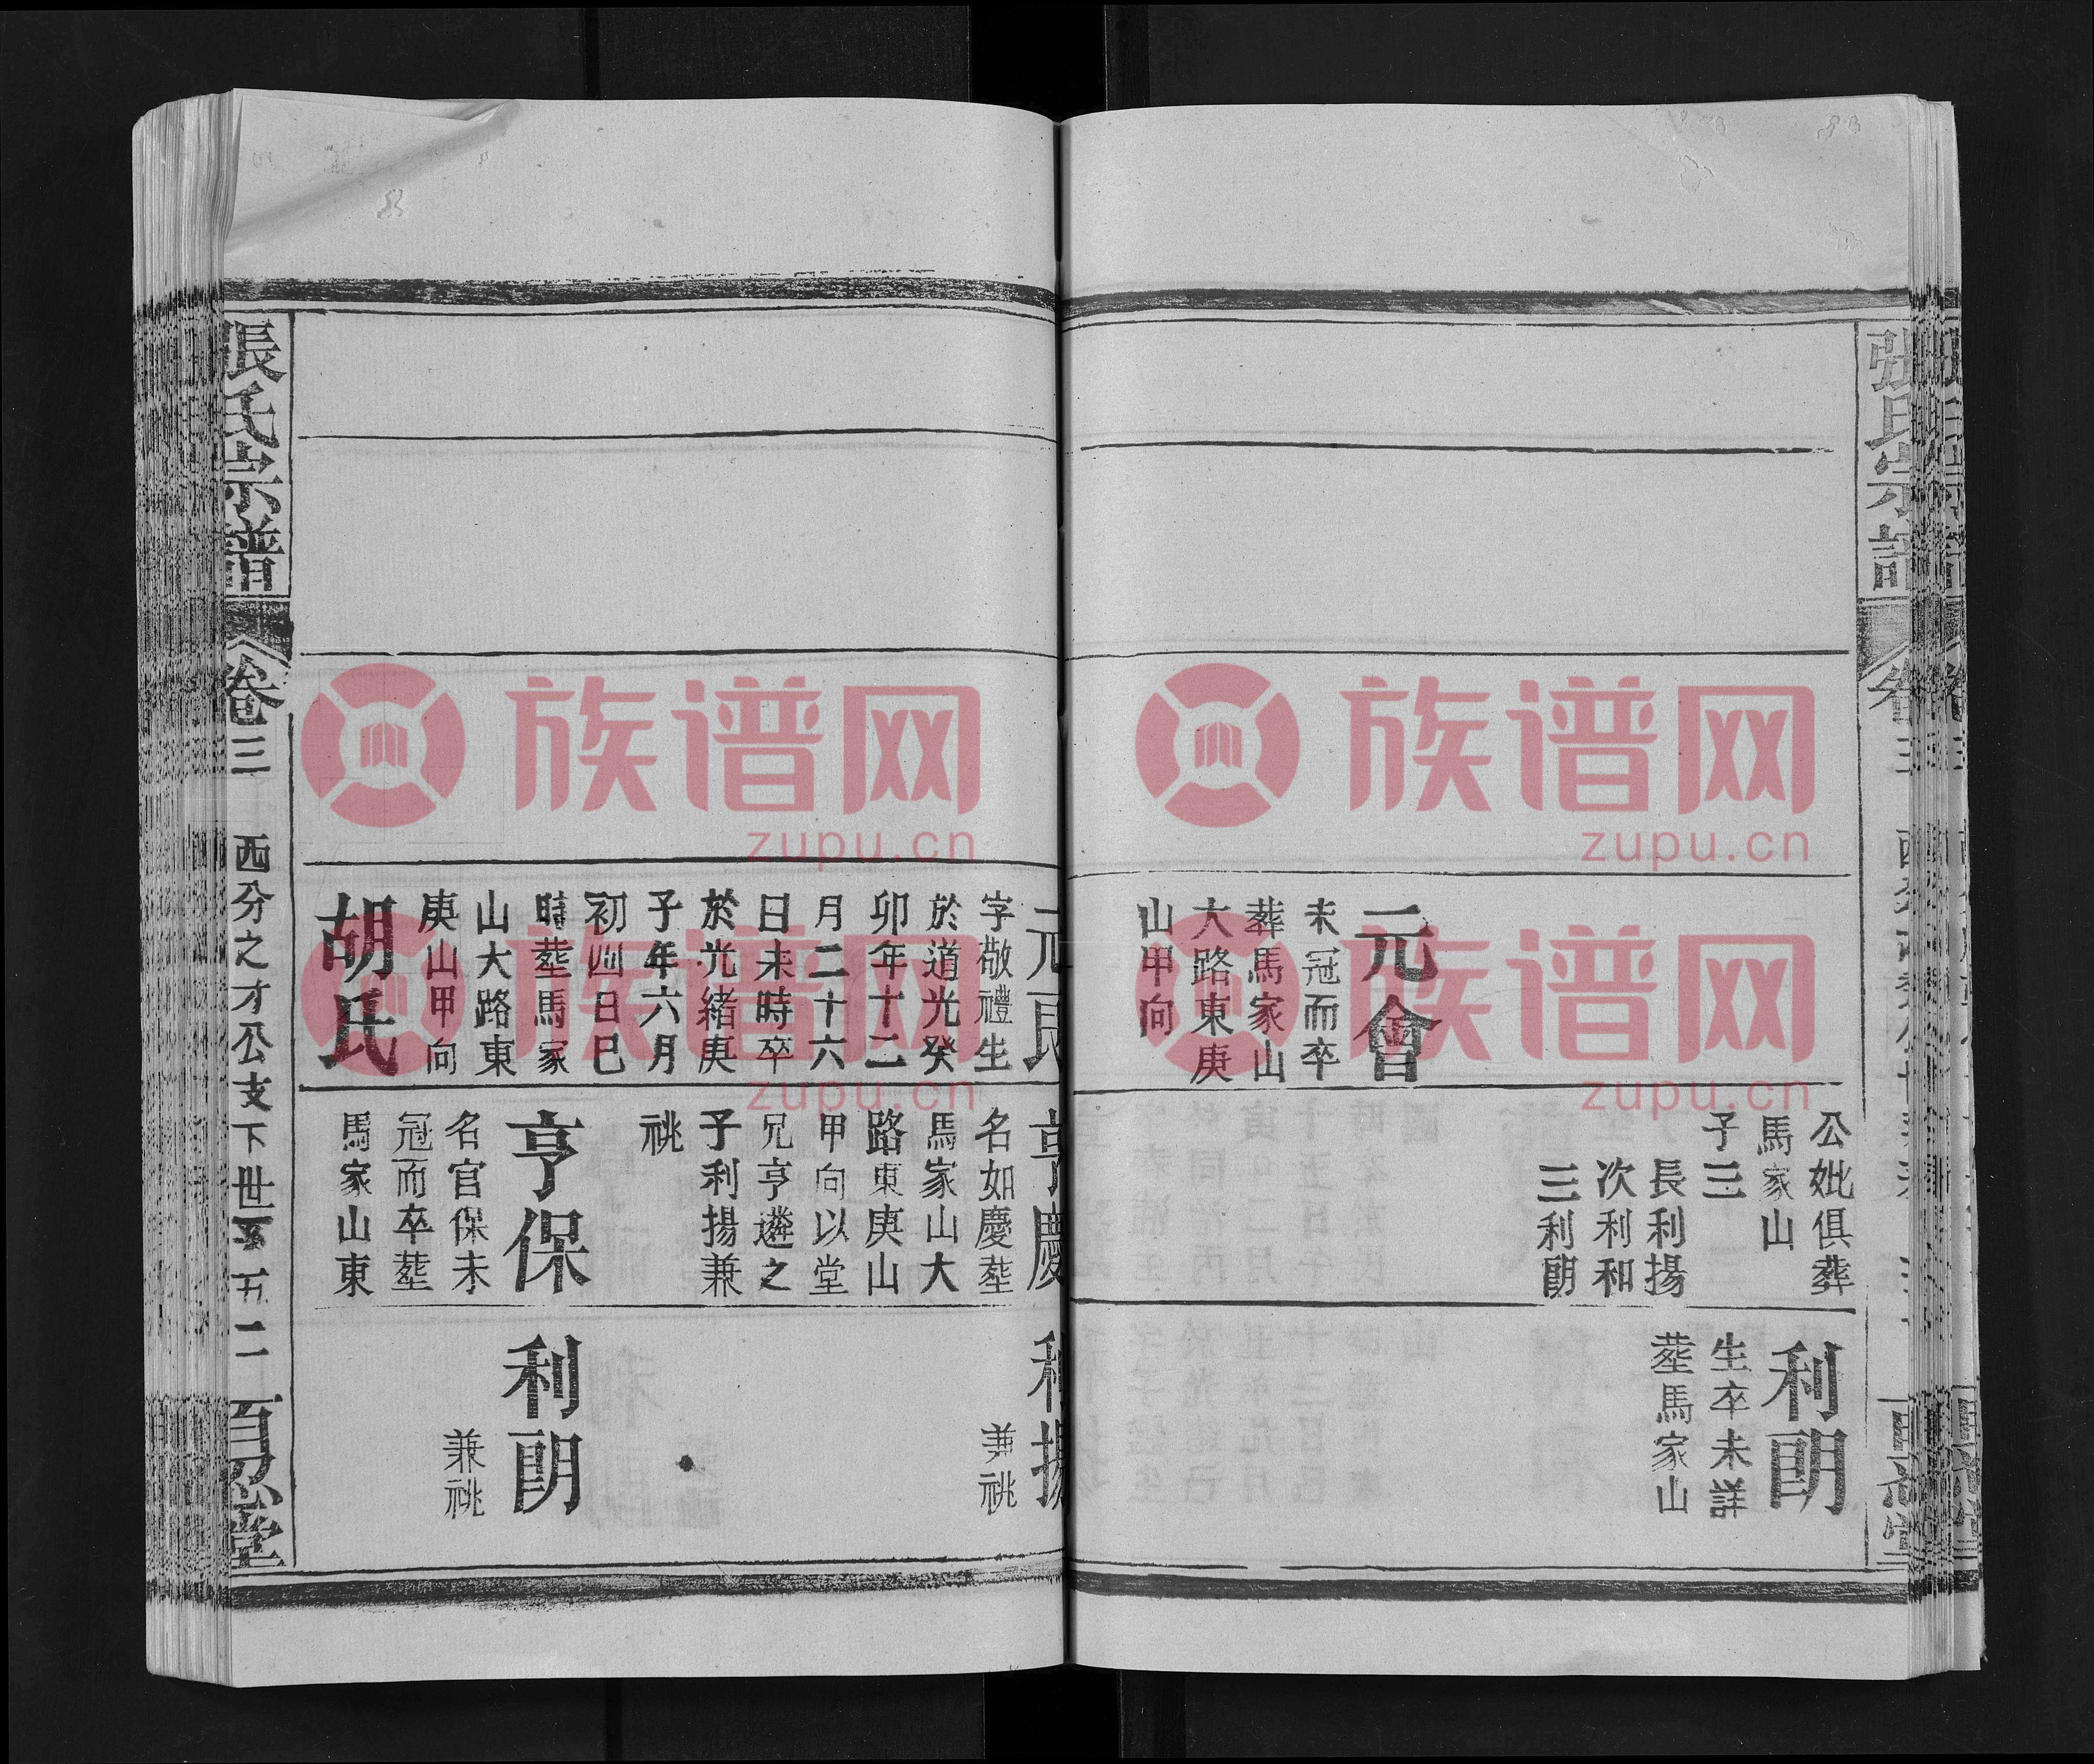 張氏宗譜
元會
未冠而卒
葬馬家山
大路東庚
山甲向
公妣俱葬
馬家山
子三
長利揚
次利和
三利朗
利朗
生卒未詳
塟馬家山
字敬禮生
於道光癸
卯年十二
月二十六
日未時卒
於光緒庚
子年六月
初四日巳
時塟馬家
山大路東
庚山甲向
胡氏
亨慶
名如慶塟
馬家山大
路東庚山
甲向以堂
兄亨遴之
子利揚兼
祧
亨保
名官保未
冠而卒塟
馬家山東
利揚
兼祧
利朗
兼祧
張氏宗譜
卷三
西分之才公支下世系
五二
百忍堂
族谱网
zupu.cn
族谱网
zupu.cn
族谱网
zupu.cn
族谱网
zupu.cn